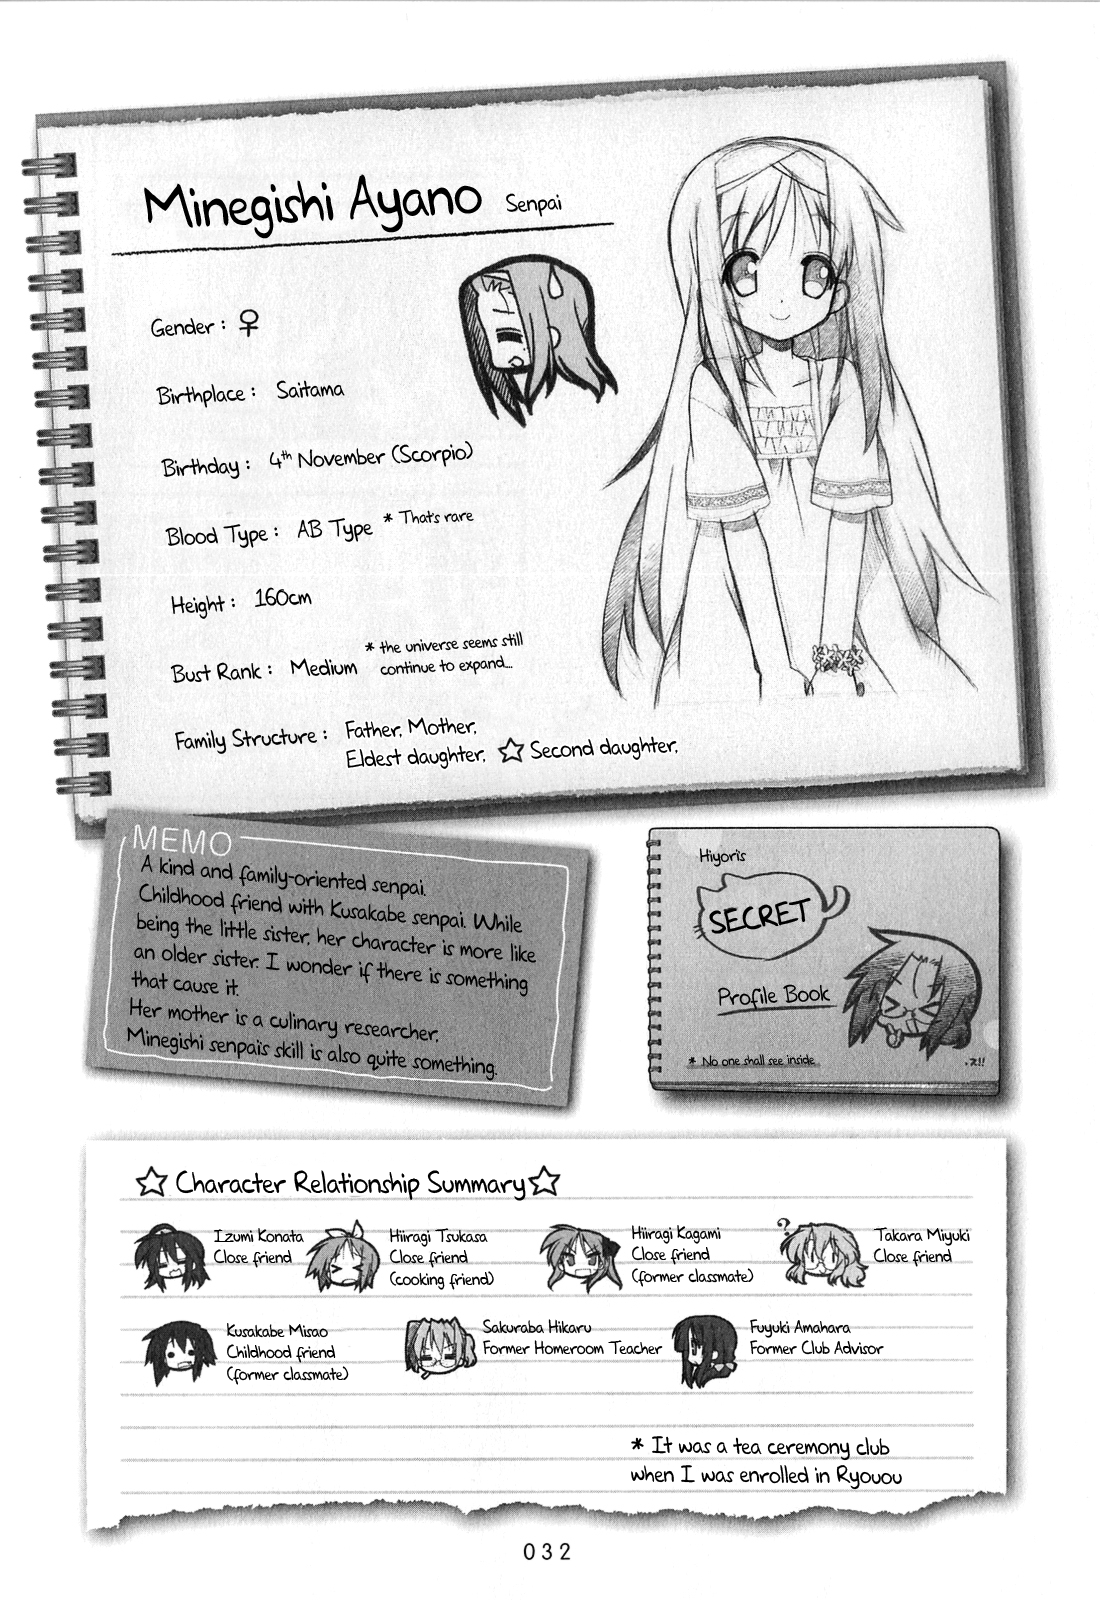 Minegishi Ayano Senpai
Gender : ♀
Birthplace : Saitama
Birthday : 4th November (Scorpio)
Blood Type : AB Type * Thats rare
Height : 160cm
Bust Rank : Medium * the universe seems still
continue to expand...
Family Structure : Father, Mother,
Eldest daughter, ☆ Second daughter,
MEMO
A kind and family-oriented senpai.
Childhood friend with Kusakabe senpai. While
being the little sister, her character is more like
an older sister. I wonder if there is something
that cause it.
Her mother is a culinary researcher.
Minegishi senpai's skill is also quite something.
Hiyori's
SECRET
Profile Book
* No one shall see inside
☆ Character Relationship Summary ☆
Izumi Konata
Close friend
Hiiragi Tsukasa
Close friend
(cooking friend)
Hiiragi Kagami
Close friend
(former classmate)
?
Takara Miyuki
Close friend
Kusakabe Misao
Childhood friend
(former classmate)
Sakuraba Hikaru
Former Homeroom Teacher
Fuyuki Amahara
Former Club Advisor
* It was a tea ceremony club
when I was enrolled in Ryouou
032